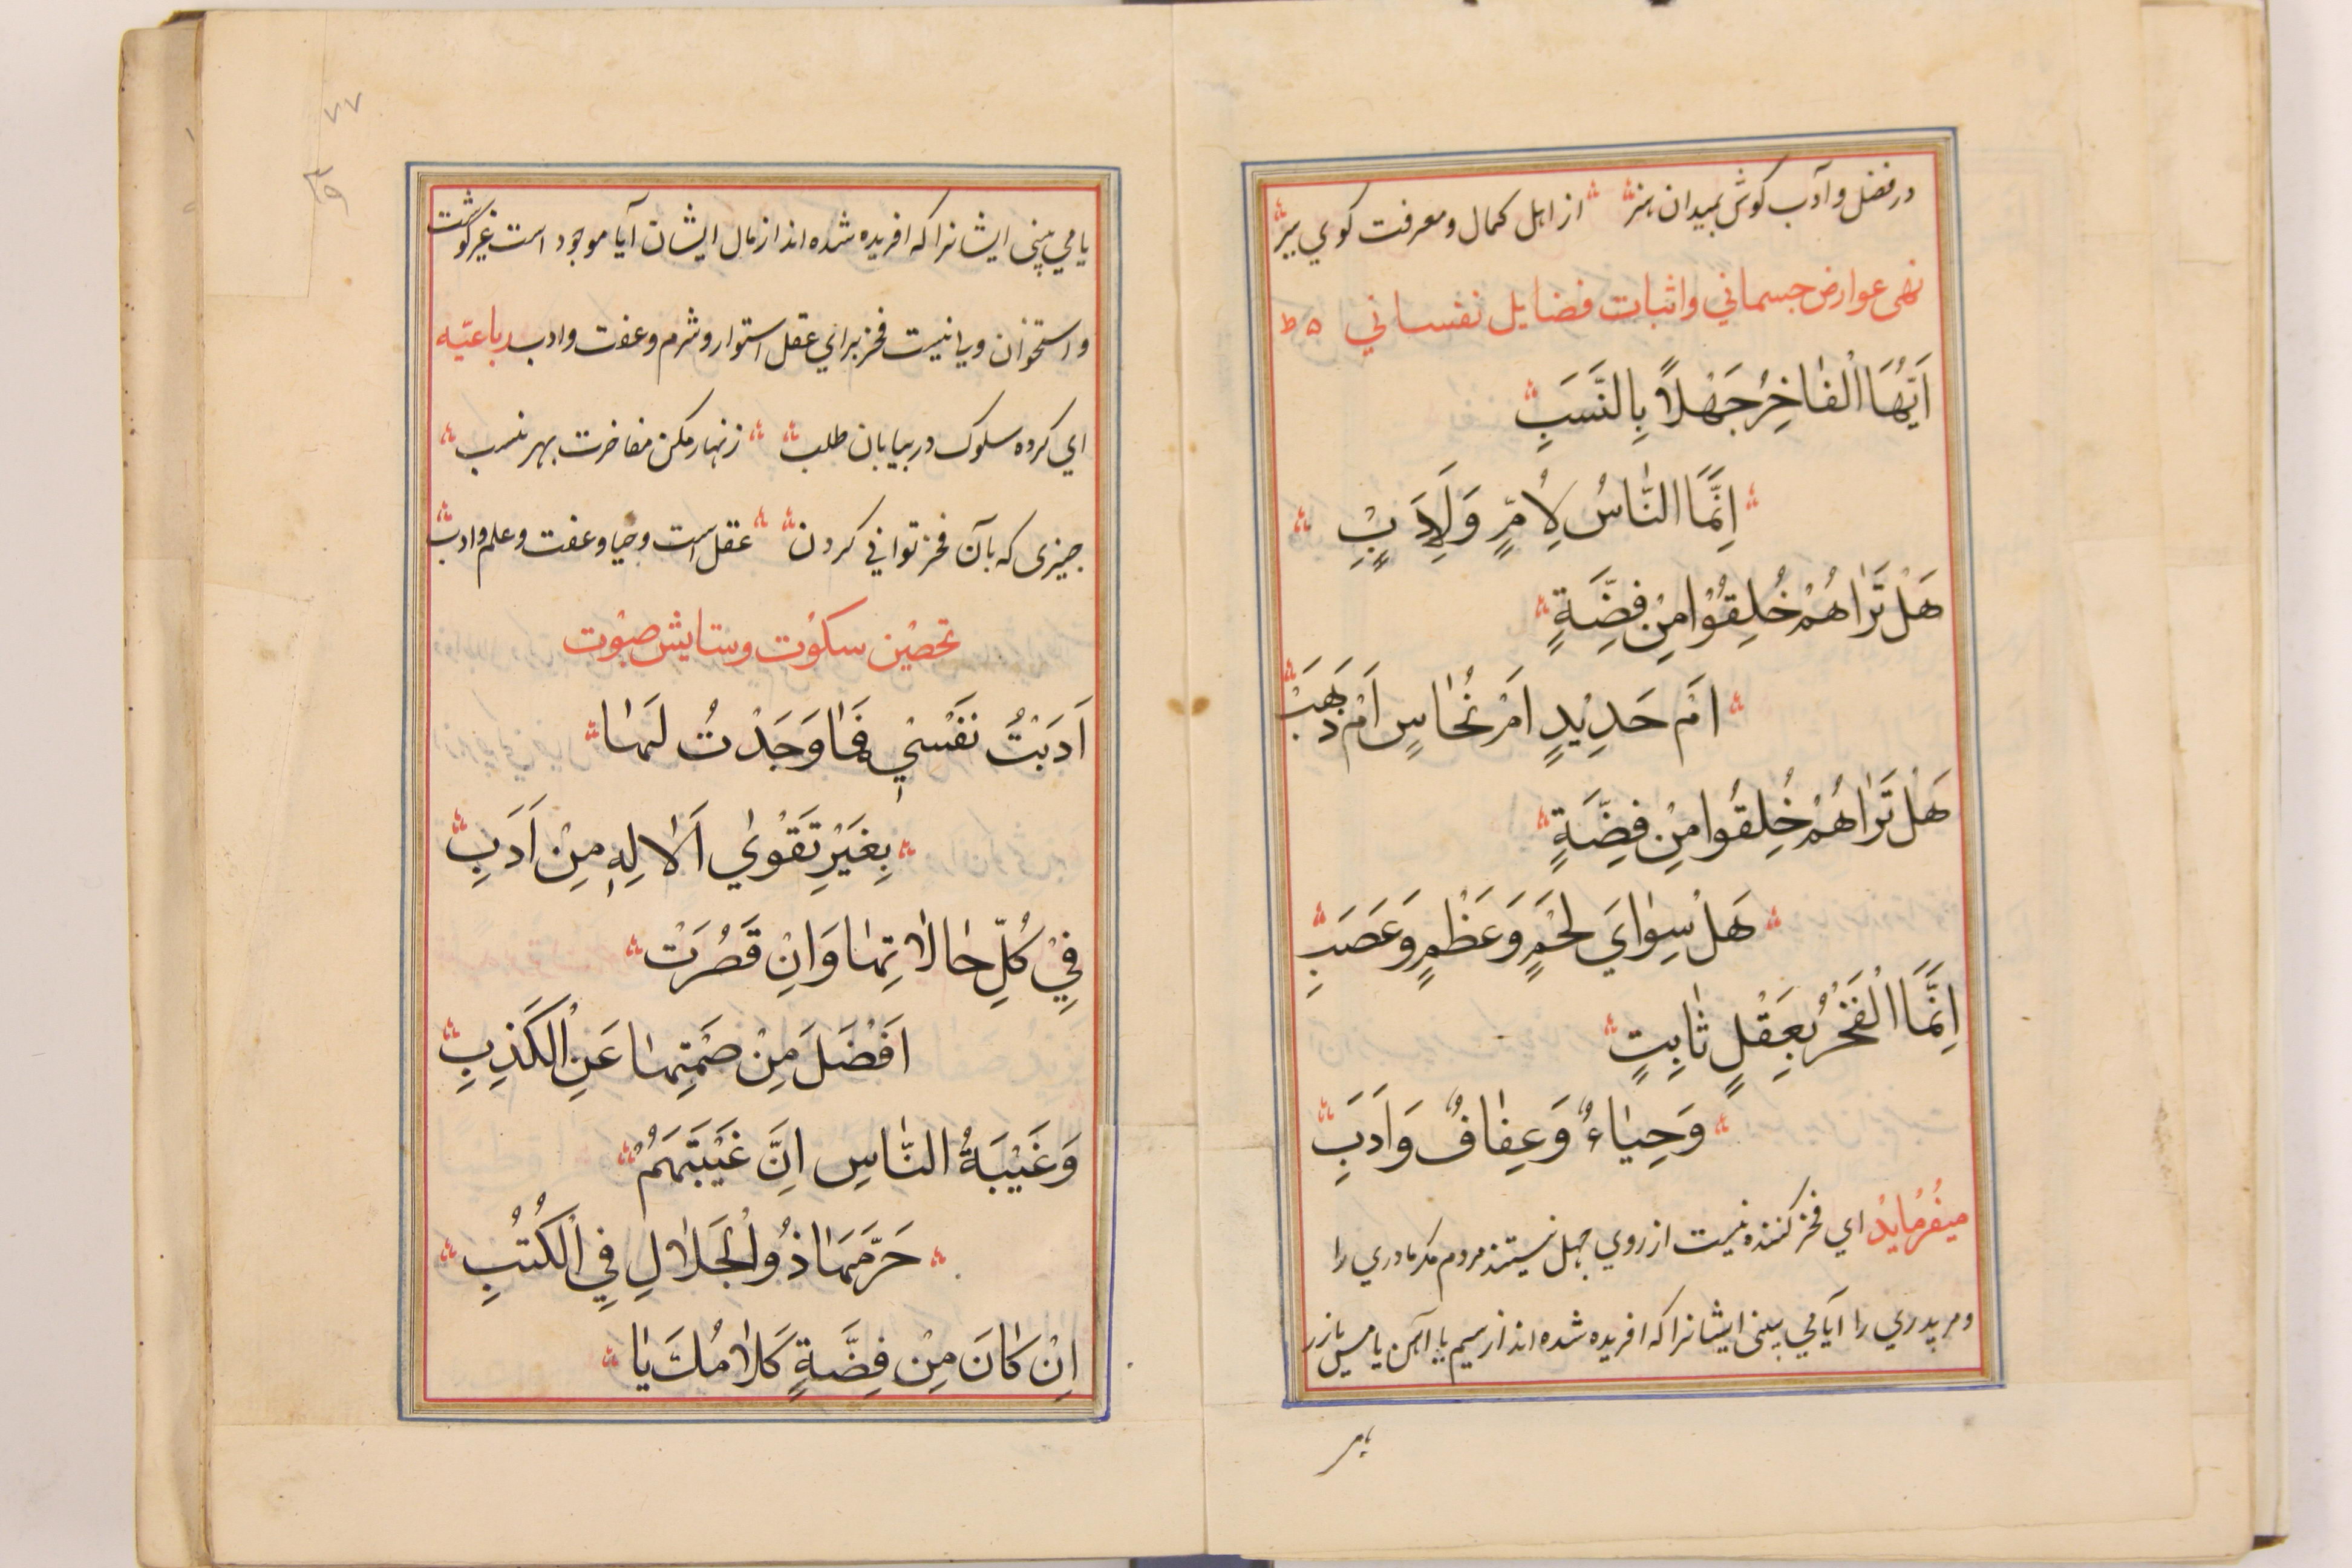 در فضل و آدب کوش بمیدان هنر از اهل کمال و معرفت کوی ببر
نهی عوارض جسمانی و اثبات فضایل نفسانی
اَیُّهَا الْفٰاخِرُ جَهْلاً بِالنَّسَبِ
اِنَّمَا النّٰاسُ لِاُمٍّ وَلِاَبٍ
هَلْ تَرٰاهُمْ خُلِقُوْا مِنْ فِضَّةٍ
اَمْ حَدِیْدٍ اَمْ نُحٰاسٍ اَمْ ذَهَبْ
هَلْ تَرٰاهُمْ خُلِقُوا مِنْ فِضَّةٍ
هَلْ سِوٰایَ لَحْمٍ وَعَظْمٍ وَعَصَبِ
اِنَّمَا الْفَخْرُ بِعَقْلٍ ثٰابِتٍ
وَحِیٰاءٌ وَعِفٰافٌ وَاَدَبِ
میفرماید ای فخر کننده نیست از روی جهل نیستند مردم مکر مادری را
و مر پدری را آیا می بینی ایشانرا که افریده شده اند از سیم یا آهن یا مس یا زر
یا می بینی ایشانرا که افریده شده اند از مال ایشان آیا موجود است غیر کوشت
و استخوان و پی نیست فخر برای عقل استوار و شرم و عفت و ادب رباعیّه
ای کرده سلوک در بیابان طلب زنهار مکن مفاخرت بهر نسب
چیزی که بآن فخر توانی کردن عقل است و حیا و عفت و علم و ادب
تحصین سکوت و ستایش صبوت
اَدَبْتُ نَفْسٖی فَمٰا وَجَدْتُ لَهٰا
بِغَیْرِ تَقْوٰی اَلْالِهِ مِنْ اَدَبِ
فِیْ کُلِّ حٰالٰاتِهٰا وَاِنْ قَصُرَتْ
اَفْضَلَ مِنْ صَمْتِهٰا عَنِ الْکَذِبِ
وَغَیْبَةُ النّٰاسِ اِنَّ غَیْبَتَهُمْ
حَرَّمَهٰا ذُوالْجَلٰالِ فِی الْکُتُبِ
اِنْ کٰانَ مِنْ فِضَّةٍ کَلٰامُكَ یٰا
یا می
۷۷